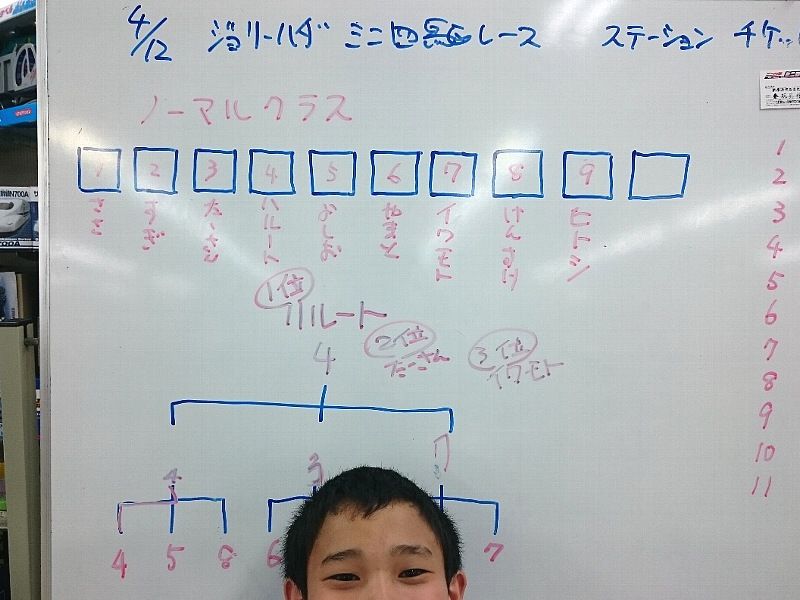 4/12 ジョリーハダ ミニ四馬区レース ステーション チケッ
ノーマルクラス
1 2 3 4 5 6 7 8 9
すぎ ハルート よしお やまと イワモト けんすけ ヒトシ
1位 2位 3位
ハルート たーさん イワモト
4
4 3 7
4 5 8 6 7
1
2
3
4
5
6
7
8
9
10
11
N700A